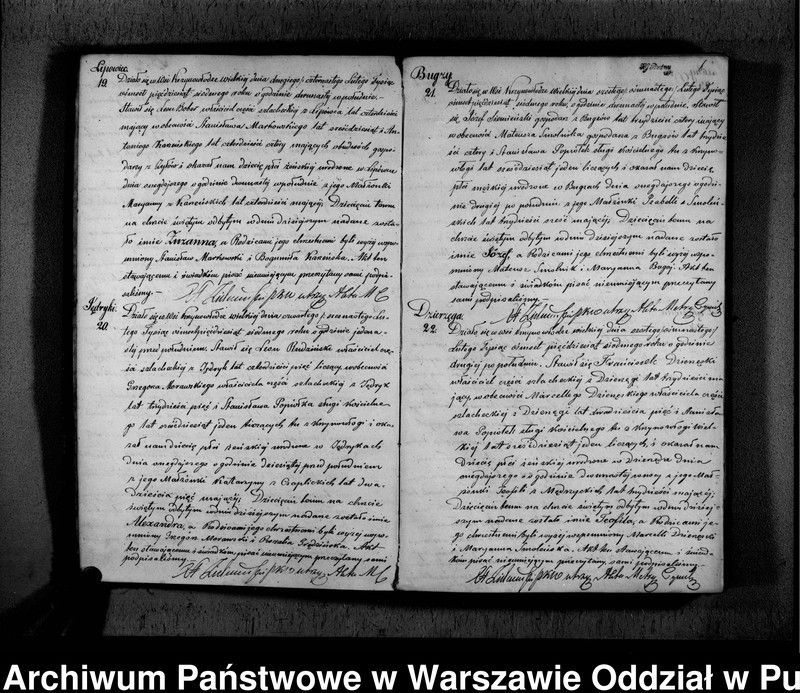 Lipowiec.
19. Działo się w Wsi Krzynowłodze wielkiej dnia drugiego/ czternastego Lutego Tysiąc
ośmset pięćdziesiąt siódmego roku o godzinie dwunastej w południe.
Stawił się Leon Bober właściciel części szlacheckiej z Lipowca lat czterdzieści
mający w obecności Stanisława Markowskiego lat sześćdziesiąt i An-
toniego lat czterdzieści cztery mających obudwóch gospo-
darzy z i okazał nam dziecię płci żeńskiej urodzone w Lipowcu
dnia onegdajszego o godzinie dwunastej w południe z jego Małżonki
Maryanny z lat czterdzieści mającej; Dziecięciu temu
na chrzcie świętym odbytym w dniu dzisiejszym nadane zosta-
ło imie Zuzanna, a Rodzicami jego chrzestnemi byli wyżej wspo-
mniony Stanisław Markowski i Bogumiła. Akt ten
stawającemu i świadkom pisać nieumiejącym przeczytany sami podpi-
saliśmy.
Jędryki.
20. Działo się w Wsi Krzynowłodze wielkiej dnia czwartego/ szesnastego Lu-
tego Tysiąc ośmset pięćdziesiąt siódmego roku o godzinie jedena-
stej przed południem. Stawił się Leon Rudziński właściciel czę-
ści szlacheckiej z Jędryk lat czterdzieści pięć liczący w obecności
Grzegorza Morawskiego właściciela części szlacheckiej z Jędryk
lat trzydzieści pięć i Stanisława Popiołka sługi kościelne-
go lat sześćdziesiąt jeden liczących tu z Krzynowłogi i oka-
zał nam dziecię płci żeńskiej urodzone w Jędrykach
dnia onegdajszego o godzinie dziesiątej przed południem
z jego Małżonki Katarzyny z Czaplickich lat dwa-
dzieścia pięć mającej; Dziecięciu temu na chrzcie
świętym odbytym w dniu dzisiejszym nadane zostało imie
Alexandra, a Rodzicami jego chrzestnemi byli wyżej wspo-
mniony Grzegorz Morawski i Rozalia. Akt
ten stawającemu i świadkom pisać nieumiejącym przeczytany sami
podpisaliśmy.
Bugzy
21. Działo się w Wsi Krzynowłodze Wielkiej dnia szóstego/ ośmnastego/ Lutego Tysiąc
ośmset pięćdziesiąt siódmego roku, o godzinie dwunastej w południe. Stawił
się Józef gospodarz z Bugzów lat trzydzieści cztery mający
w obecności Mateusza Smolnika gospodarza z Bugzów lat trzydzie-
ści cztery i Stanisława Popiołek sługi kościelnego tu z Krzyno-
włogi lat sześćdziesiąt jeden liczących i okazał nam dziecię
płci męzkiej urodzone w Bugzach dnia onegdajszego o godzi-
nie drugiej po południu z jego Małżonki Izabelli z Smoleń-
skich lat trzydzieści sześć mającej; Dziecięciu temu na
chrzcie świętym odbytym w dniu dzisiejszym nadane zostało
imie Józef, a Rodzicami jego chrzestnemi byli wyżej wspo-
mniony Mateusz Smolnik i Maryanna. Akt ten
stawającemu i świadkom pisać nieumiejącym przeczytany
sami podpisaliśmy.
Dzierzęga.
22. Działo się w Wsi Krzynowłodze wielkiej dnia szóstego/ ośmnastego/
Lutego Tysiąc ośmset pięćdziesiąt siódmego roku o godzinie
drugiej po południu. Stawił się Franciszek Dzierzęski
właściciel części szlacheckiej z Dzierzęgi lat trzydzieści ma-
jący, w obecności Marcellego Dzierzęskiego właściciela części
szlacheckiej z Dzierzęgi lat dwadzieścia pięć i Stanisła-
wa Popiołek sługi kościelnego tu z Krzynowłogi Wiel-
kiej lat sześćdziesiąt jeden liczących, i okazał nam
Dziecię płci żeńskiej urodzone w dnia
onegdajszego o godzinie dwunastej z jego Mał-
żonki Teofili z lat trzydzieści mającej;
Dziecięciu temu na chrzcie świętym odbytym w dniu dzisiej-
szym nadane zostało imie Teofila, a Rodzicami je-
go chrzestnemi byli wyżej wspomniony Marcelli Dzierzęski
i Maryanna Smoleńska. Akt ten stawającemu i świad-
kom pisać nieumiejącym przeczytany sami podpisaliśmy.
Archiwum Państwowe w Warszawie Oddział w Pu